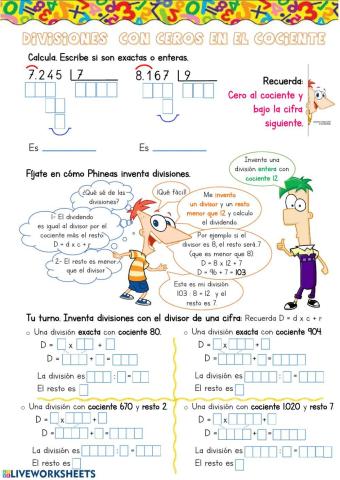 DIVISIONES CON CEROS EN EL COCIENTE
Calcula. Escribe si son exactas o enteras.
7.245 7
8.167 9
Recuerda:
Cero al cociente y
bajo la cifra
siguiente.
Es
Es
Fíjate en cómo Phineas inventa divisiones.
Inventa una
división entera con
cociente 12
¿Qué sé de las
divisiones?
¡Qué fácil!
1- El dividendo
es igual al divisor por el
cociente más el resto
D = d x c + r
2- El resto es menor
que el divisor
Me invento
un divisor y un resto
menor que 12 y calculo
el dividendo.
Por ejemplo si el
divisor es 8, el resto será 7
(que es menor que 8)
D = 8 x 12 + 7
D = 96 + 7 = 103
Esta es mi división
103 : 8 = 12 y el
resto es 7
Tu turno. Inventa divisiones con el divisor de una cifra: Recuerda D = d x c + r
o Una división exacta con cociente 80.
D = x +
D = + =
La división es : =
El resto es
o Una división exacta con cociente 904.
D = x +
D = + =
La división es : =
El resto es
o Una división con cociente 670 y resto 2
D = x +
D = + =
La división es : =
El resto es
o Una división con cociente 1.020 y resto 7
D = x +
D = + =
La división es : =
El resto es
LIVEWORKSHEETS